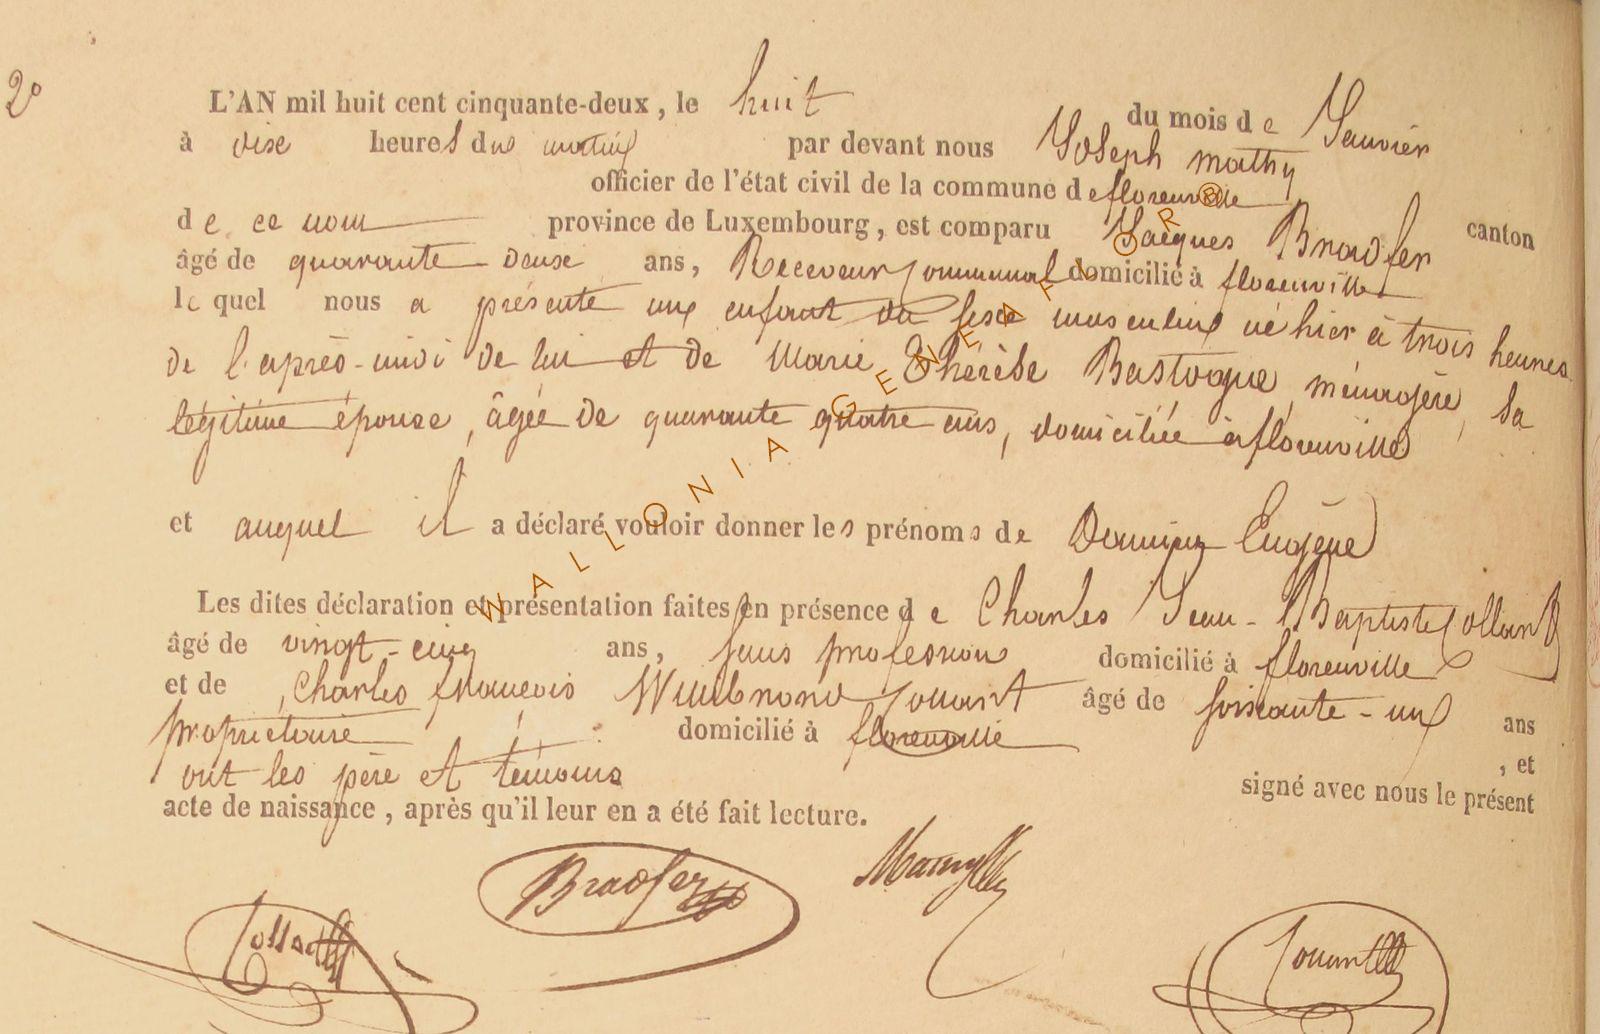 2°
L'AN mil huit cent cinquante-deux, le huit du mois de Janvier
à dix heures du matin par devant nous Joseph Mathy
officier de l'état civil de la commune de florenville
de ce nom province de Luxembourg, est comparu Jacques Bradfer canton
âgé de quarante deux ans, Receveur Communal domicilié à florenville
lequel nous a présenté un enfant du sexe masculin né hier à trois heures
de l'après-midi de lui et de Marie Thérèse Bastogne, ménagère, sa
légitime épouse, âgée de quarante quatre ans, domiciliée à florenville
et auquel il a déclaré vouloir donner les prénoms de Eugène
Les dites déclaration et présentation faites en présence de Charles Jean-Baptiste
âgé de vingt-cinq ans, sans profession domicilié à florenville
et de Charles françois âgé de soixante-un ans
propriétaire domicilié à florenville
ont les père et témoins , et
signé avec nous le présent
acte de naissance, après qu'il leur en a été fait lecture.
Bradfer
Mathy
WALLONIA GENEALOR®